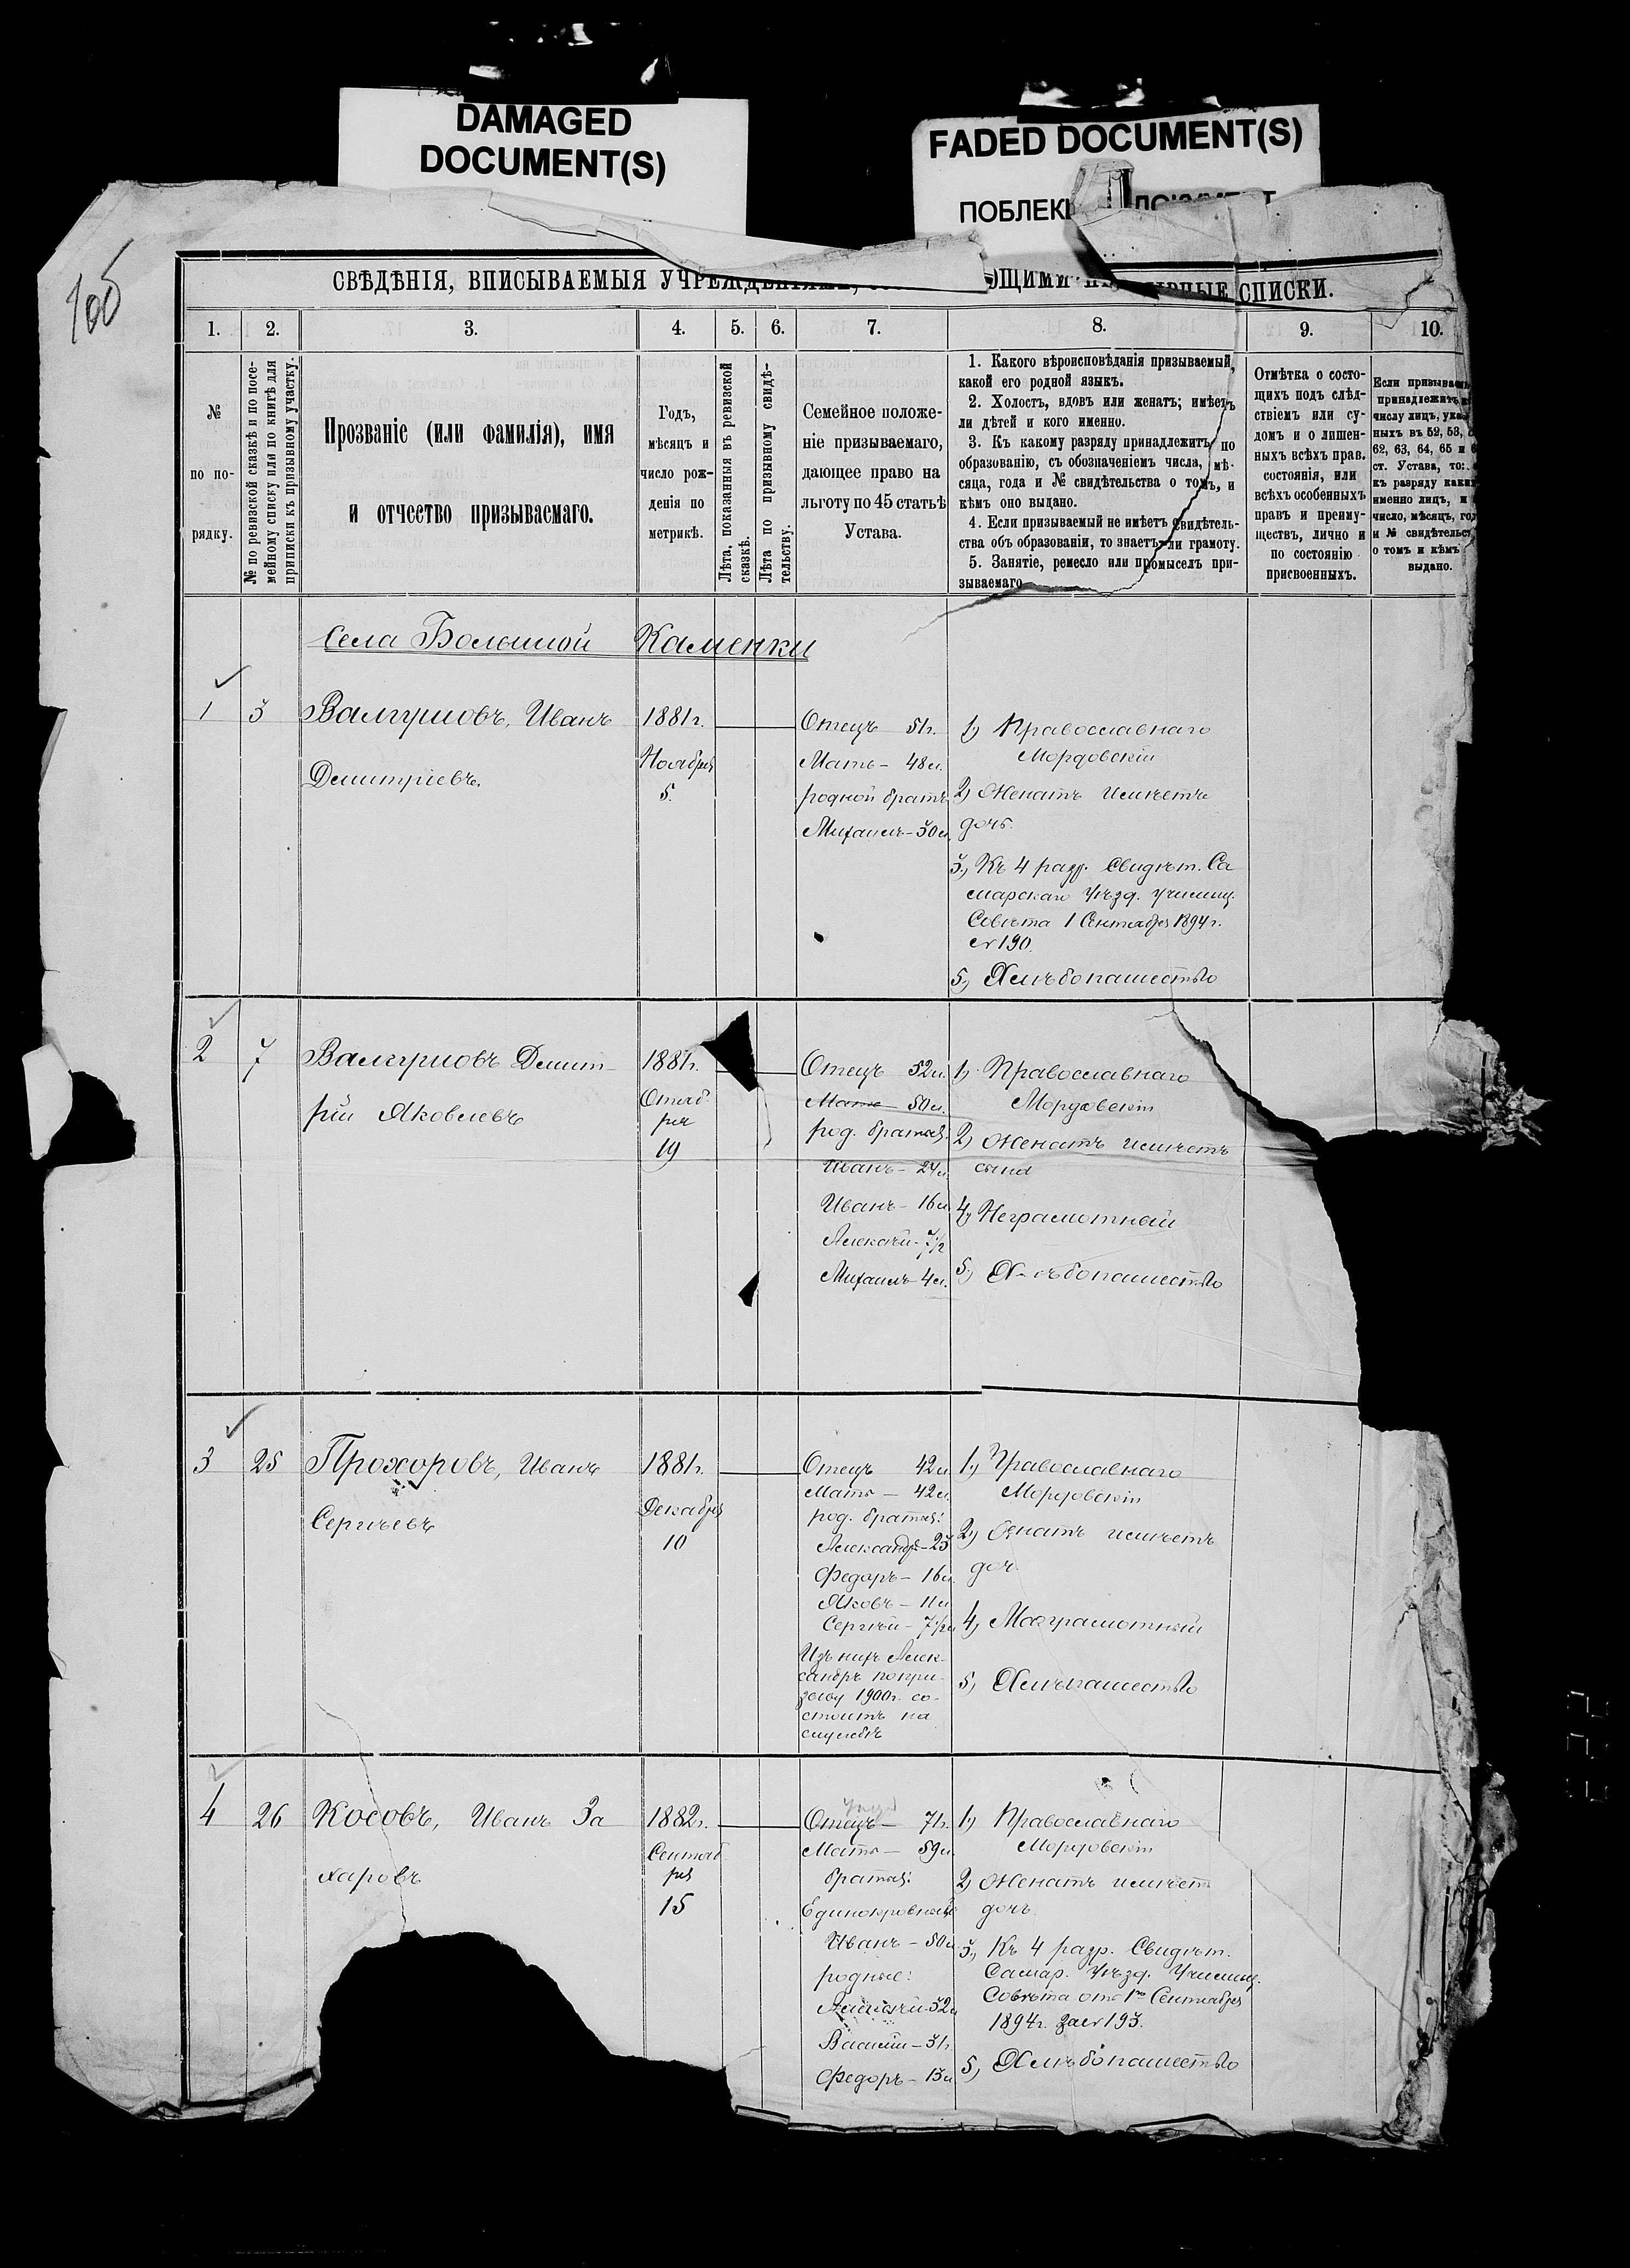 DAMAGED
DOCUMENT(S)
FADED DOCUMENT(S)
ПОБЛЕК
100
СВѢДѢНІЯ, ВПИСЫВАЕМЫЯ УЧРЕЖДЕНІЯМИ, СПИСКИ.
1. 2. 3. 4. 5. 6. 7. 8. 9. 10.
№
по по-
рядку.
№ по ревизской сказкѣ и по посе-
мейному списку или по книгѣ для
приписки къ призывному участку.
Прозваніе (или фамилія), имя
и отчество призываемаго.
Годъ,
мѣсяцъ и
число рож-
денія по
метрикѣ.
Лѣта, показанныя въ ревизской
сказкѣ.
Лѣта по призывному свидѣ-
тельству.
Семейное положе-
ніе призываемаго,
дающее право на
льготу по 45 статьѣ
Устава.
1. Какого вѣроисповѣданія призываемый,
какой его родной языкъ.
2. Холостъ, вдовъ или женатъ; имѣетъ
ли дѣтей и кого именно.
3. Къ какому разряду принадлежитъ по
образованію, съ обозначеніемъ числа, мѣ-
сяца, года и № свидѣтельства о томъ, и
кѣмъ оно выдано.
4. Если призываемый не имѣетъ свидѣтель-
ства объ образованіи, то знаетъ ли грамоту.
5. Занятіе, ремесло или промыселъ при-
зываемаго
Отмѣтка о состо-
щихъ подъ слѣд-
ствіемъ или су-
домъ и о лишен-
ныхъ всѣхъ прав.
состоянія, или
всѣхъ особенныхъ
правъ и преиму-
ществъ, лично и
по состоянію
присвоенныхъ.
Если призываем
принадлежитъ
числу лицъ, ука
ныхъ въ 52, 53,
62, 63, 64, 65 и
ст. Устава, то:
къ разряду каки
именно лицъ, и
число, мѣсяцъ, го
и № свидѣтельс
о томъ и кѣмъ
выдано.
Села Большой Каменки
1 3 Валгушовъ, Иванъ
Дмитріевъ.
1881г.
Ноября
5.
Отецъ 51г.
Мать - 48л.
родной братъ
Михаилъ - 30л.
1) Православнаго
Мордовскій
2) Женатъ имѣетъ
дочь.
3) Къ 4 разр. Свидѣт. Са
марскаго Уѣзд. Училищ.
Совѣта 1 Сентября 1894г.
№190.
5) Хлѣбопашество
2 7 Валгушовъ Дмит-
рій Яковлевъ
1881г.
Октяб
ря
19
Отецъ 52л.
Мать 50л.
род. братья:
Иванъ - 24л.
Иванъ - 16л.
Алексѣй - 7 1/2
Михаилъ - 4л.
1) Православнаго
Мордовскій
2) Женатъ имѣетъ
сына
4) Неграмотный
5) Хлѣбопашество
3 25 Прохоровъ, Иванъ
Сергѣевъ
1881г.
Декабря
10
Отецъ 42л.
Мать - 42л.
род. братья:
Александръ - 23
Федоръ - 16л.
Яковъ - 11л.
Сергѣй - 7 1/2л
Изъ нихъ Алек-
сандръ по при-
зыву 1900г. со-
стоитъ на
службѣ
1) Православнаго
Мордовскій
2) Женатъ имѣетъ
доч
4) Малграмотный
5) Хлѣбпашество
4 26 Косовъ, Иванъ За
харовъ
1882г.
Сентяб
ря
15
Отецъ - 71г.
Мать - 59л.
братья:
Единокровный
Иванъ - 50л
родные:
Алексѣй - 32л
Василій - 31г.
Федоръ - 13л
1) Православнаго
Мордовскій
2) Женатъ имѣет
дочь
3) Къ 4 разр. Свидѣт.
Самар. Уѣзд. Училищ.
Совѣта отъ 1го Сентября
1894г. за №193.
5) Хлѣбопашество